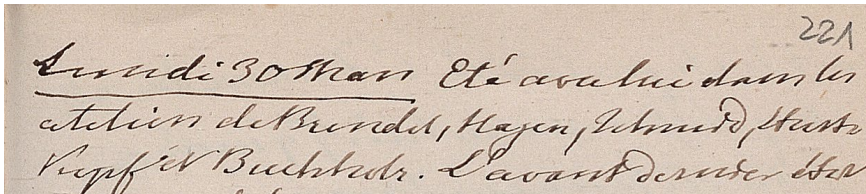 221
Lundi 30 Mars Eté avec lui dans les
ateliers de Brendel, Hagen, Schmidt,
Kopf et Buchholz. L'avant dernier était